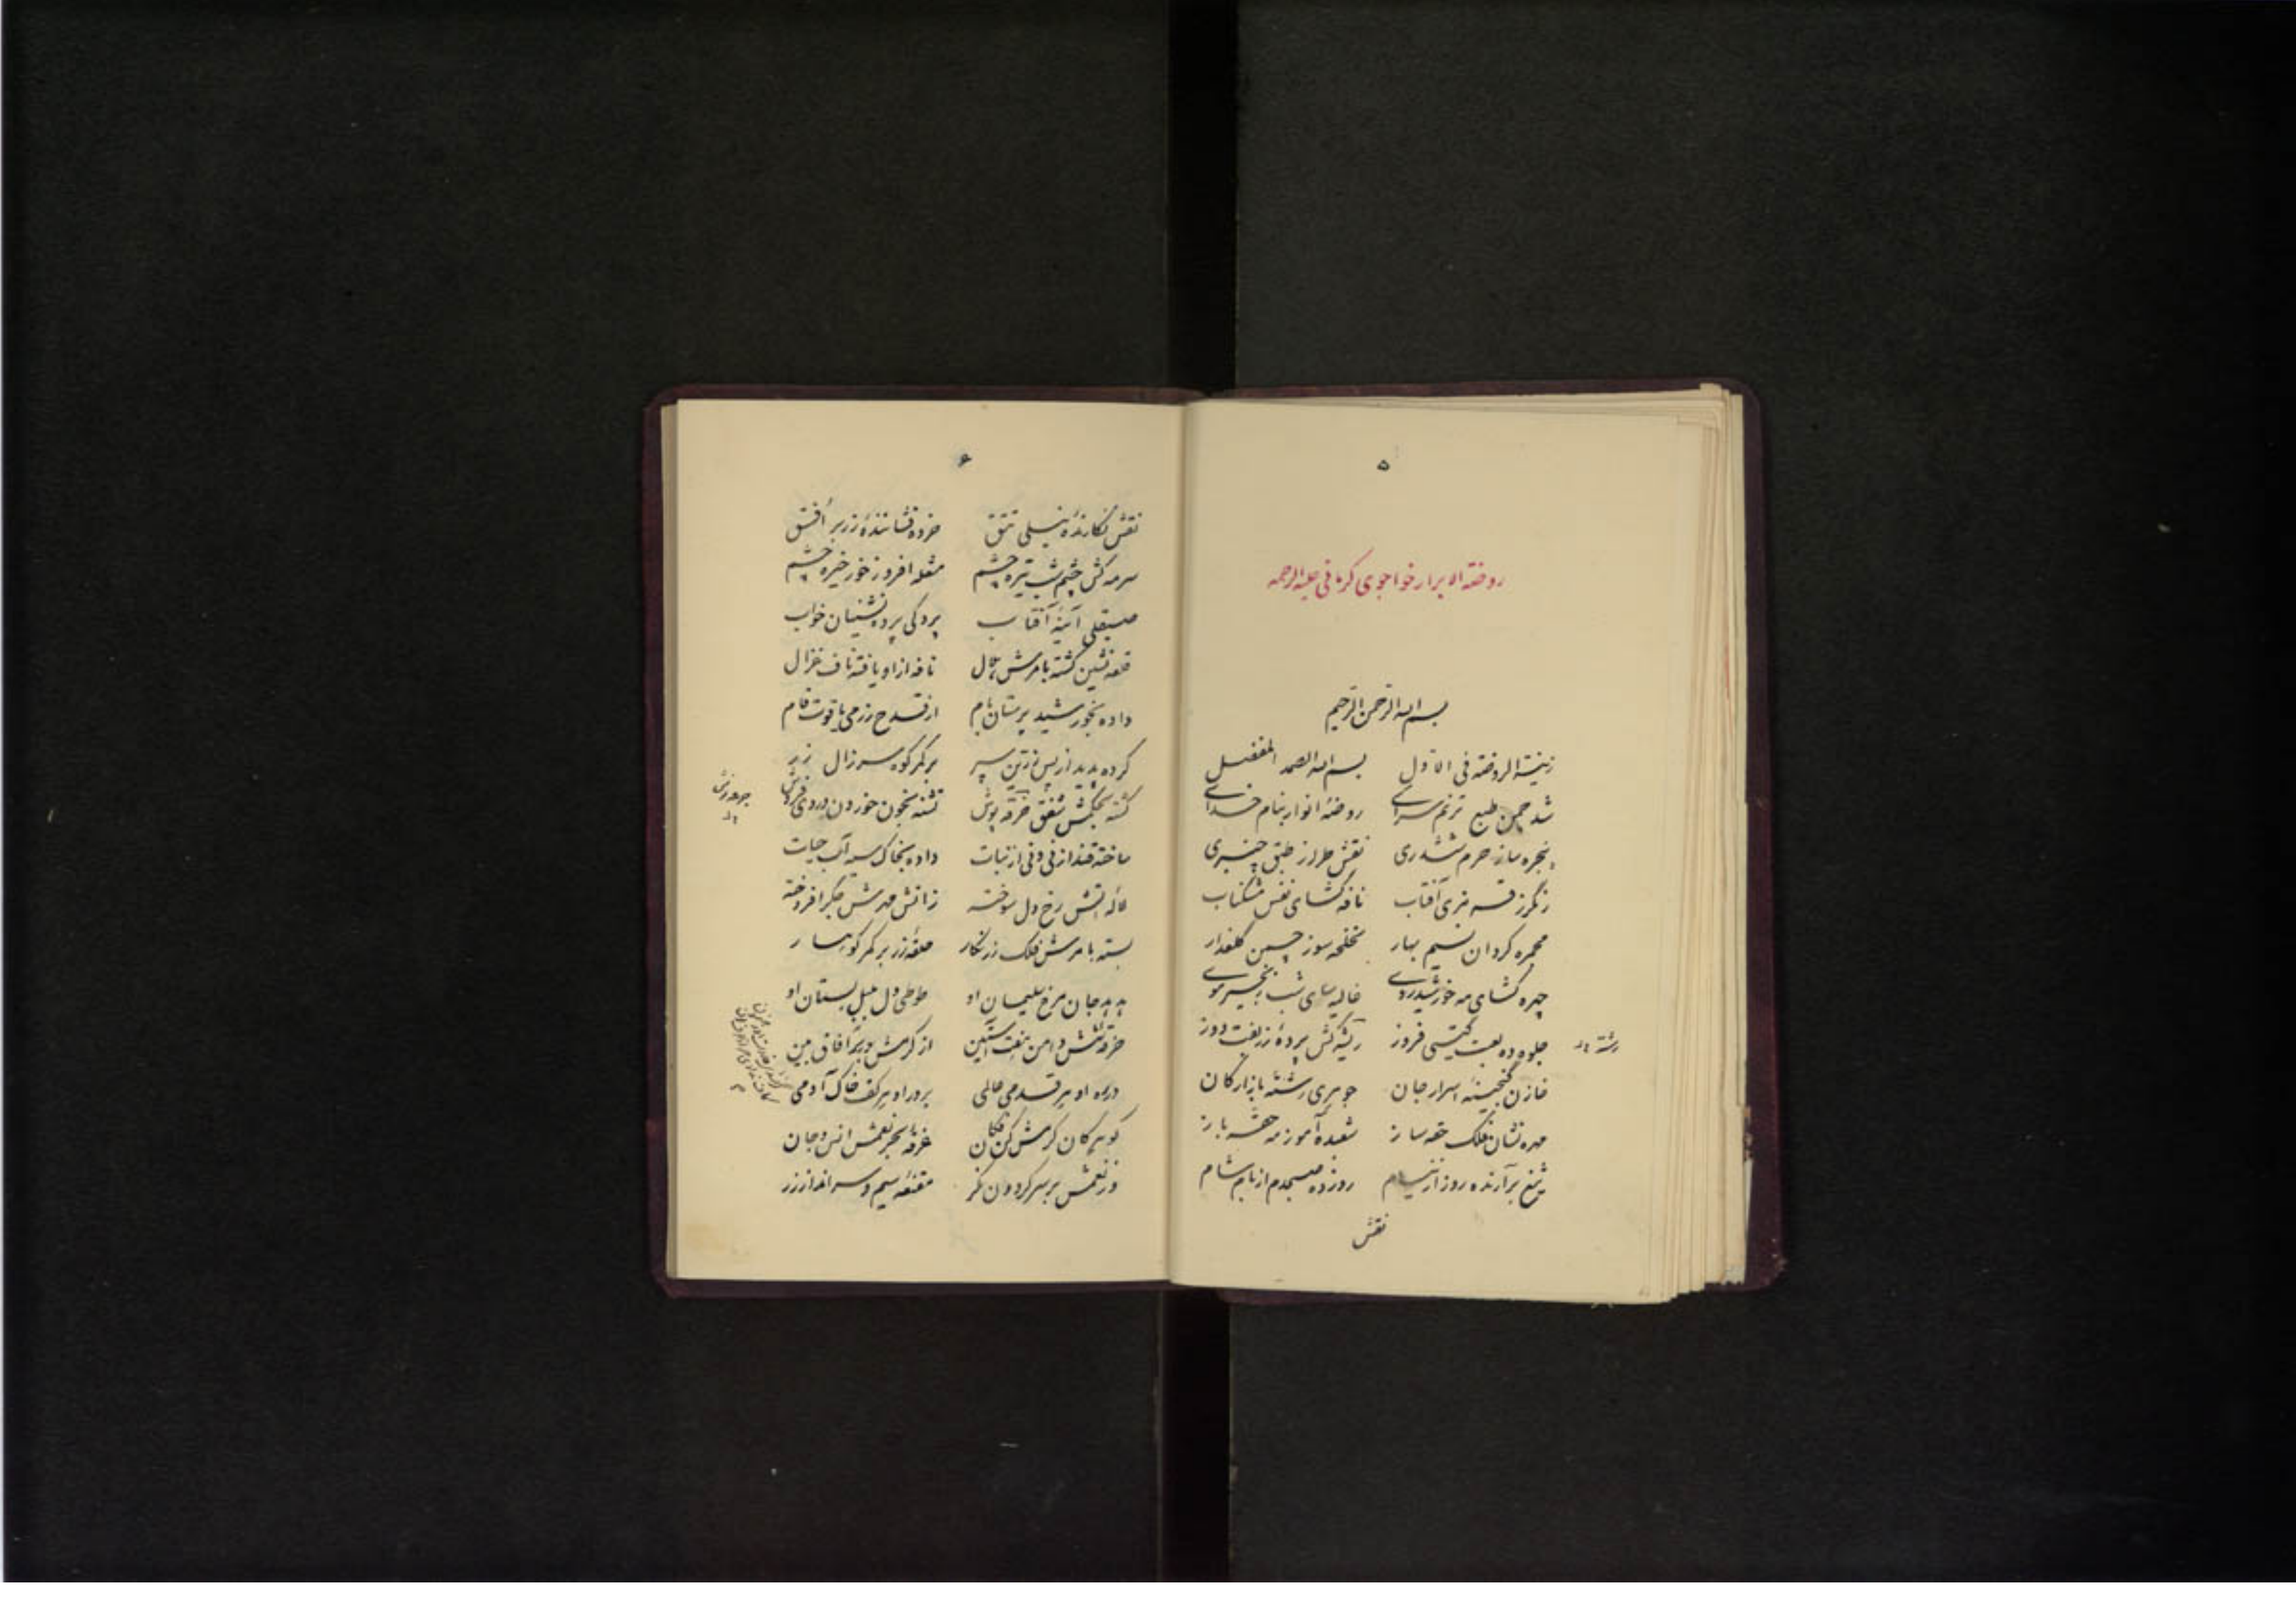 ۵
روضة الابرار خواجوی کرمانی علیه الرحمه
بسم الله الرحمن الرحیم
زینة الروضة فی الاول بسم الله الصمد المفضل
شد چمن طبع ترنم سرای روضهٔ انوار بنام خدای
پنجره ساز حرم ششدری نقش طراز طبق چنبری
رنگرز آفتاب نافه گشای نفس مشکناب
مجمره گردان نسیم بهار لخلخه سوز چمن گلعذار
چهره گشای مه خورشید روی غالیه سای شب زنجیر موی
جلوه ده لعبت گیتی فروز ریشه کش پردهٔ زربفت دوز
رشته
خازن گنجینهٔ اسرار جان جوهری رشتهٔ بازار کان
مهره نشان فلک حقه ساز شعبده آموز مه حقه باز
تیغ برآرنده روز از نیام روز ده صبحدم از بام شام
نقش
۶
نقش نگارندهٔ نیلی تتق خرده فشانندهٔ زر بر افق
سرمه کش چشم شب تیره چشم مشعله افروز خور خیره چشم
صیقلی آینهٔ آفتاب پردگی پرده نشینان خواب
قلعه نشین گشته بامرش نافه از او یافته ناف غزال
داده بخورشید پرستان بام از قدح زر می یاقوت فام
کرده پدید از پس زرین سپر بر کمر کوه سر زال زر
گشته بحکمش شفق خرقه پوش تشنه بخون خوردن و دردی فروش
ساخته قند از نی و نی از نبات داده بخاک سیه آب حیات
لاله آتش رخ دل سوخته ز آتش مهرش جگر افروخته
بسته بامرش فلک زرنگار حلقهٔ زر بر کمر کوهسار
هدهد جان مرغ سلیمان او طوطی دل بلبل بستان او
دامن هفت آستین از کرمش آفاق بین
در ره او هر قدمی عالمی بر در او هر کف خاک آدمی
گوهر کان کرمش کن فکان غرقهٔ بحر نعمش انس و جان
وز نعمش بر سر گردون نگر مقنعه سیم و سر انداز زر